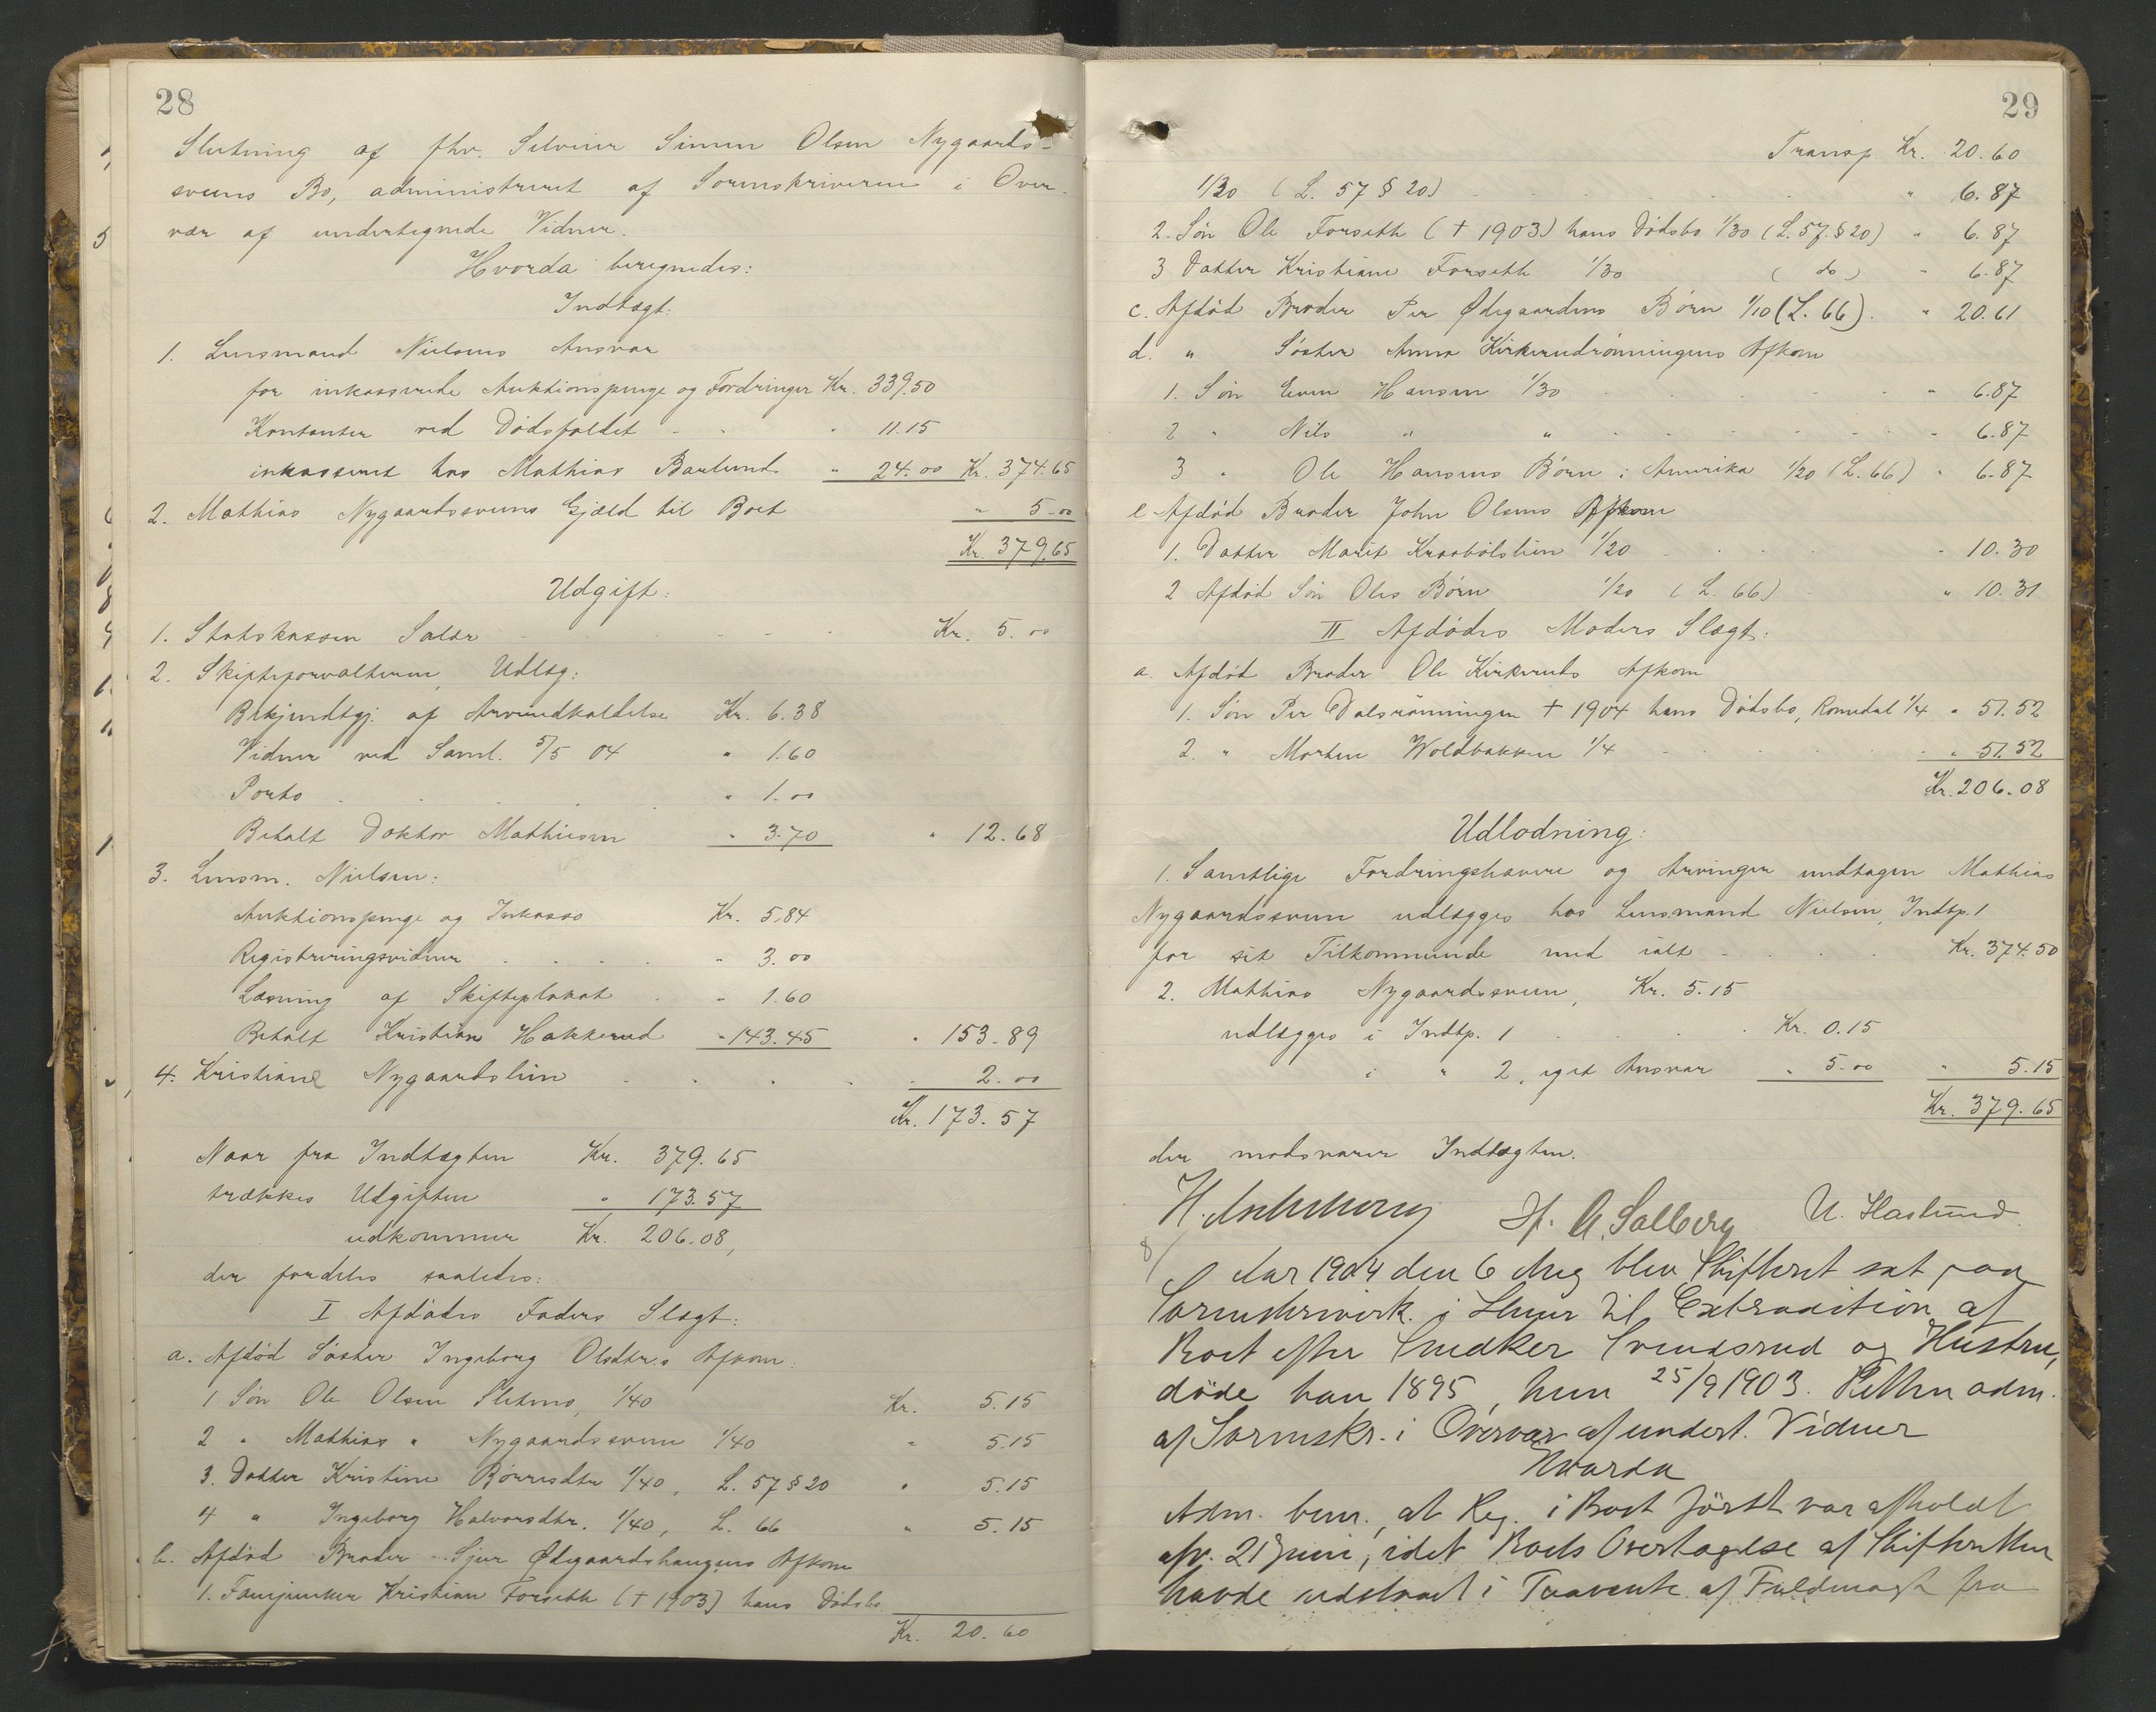 28
Slutning af fhv. Selveier Simen Olsen Nygaards-
sveens Bo, administreret af Sorenskriveren i Over-
vær af undertegnede Vidner.
Hvorda beregnedes:
Indtægt:
1. Lensmand Nielsens Ansvar
for inkasserede Auktionspenge og Fordringer Kr. 339.50
Kontanter ved Dødsfaldet - - " 11.15
inkasseret hos Mathias Baulund " 24.00 Kr. 374.65
2. Mathias Nygaardssveens Gjæld til Boet " 5.00
Kr. 379.65
Udgift:
1. Statskassen Salær Kr. 5.00
2. Skifteforvalteren, Udlæg:
Bekjendtgj. af Arveindkaldelse Kr. 6.38
Vidner ved Saml. 5/5 04 " 1.60
Porto " 1.00
Betalt Doktor Mathiesen " 3.70 " 12.68
3. Lensm. Nielsen:
Auktionspenge og Inkasso Kr. 5.84
Registreringsvidner " 3.00
Læsning af Skifteplakat " 1.60
Betalt Kristian Hakkerud " 143.45 " 153.89
4. Kristiane Nygaardslien " 2.00
Kr. 173.57
Naar fra Indtægten Kr. 379.65
trækkes Udgiften " 173.57
udkommer Kr. 206.08,
der fordeles saaledes:
I Afdødes Faders Slægt:
a. Afdød Søster Ingeborg Olsdtr.s Afkom:
1 Søn Ole Olsen Sletmo, 1/40 Kr. 5.15
2 " Mathias " Nygaardssveen 1/40 " 5.15
3. Datter Kristine Børresdtr 1/40, L. 57 § 20 " 5.15
4 " Ingeborg Halvorsdtr. 1/40, L. 66 " 5.15
b. Afdød Broder Sjur Ødegaardshaugens Afkom
1. Fanejunker Kristian Forseth († 1903) hans Dødsbo
Kr. 20.60
29
Transp Kr. 20.60
1/30 (L. 57 § 20) " 6.87
2. Søn Ole Forseth († 1903) hans Dødsbo 1/30 (L. 57. § 20) " 6.87
3 Datter Kristiane Forseth 1/30 (do) " 6.87
c. Afdød Broder Per Ødegaardens Børn 1/10 (L. 66). " 20.61
d. " Søster Anna Kirkerudrønningens Afkom
1. Søn Even Hansen 1/30 " 6.87
2 " Nils " " " 6.87
3 " Ole Hansens Børn i Amerika 1/20 (L. 66) " 6.87
e Afdød Broder John Olsens Afkom
1. Datter Marit Kraabølslien 1/20 " 10.30
2 Afdød Søn Oles Børn 1/20 (L. 66) " 10.31
II Afdødes Moders Slægt:
a. Afdød Broder Ole Kirkeruds Afkom
1. Søn Per Dalsrønningen † 1904 hans Dødsbo, Romedal 1/4 " 51.52
2. " Morten Woldbakken 1/4 " 51.52
Kr. 206.08
Udlodning:
1. Samtlige Fordringshavere og Arvinger undtagen Mathias
Nygaardssveen udlægges hos Lensmand Nielsen, Indtp. 1
for sit Tilkommende med ialt Kr. 374.50
2. Mathias Nygaardssveen, Kr. 5.15
udlægges i Indtp. 1 Kr. 0.15
i " 2, eget Ansvar " 5.00 " 5.15
Kr. 379.65
der modsvarer Indtægten.
A. Solberg U. Haslund.
Aar 1904 den 6 Aug blev Skifteret sat paa
Sorenskriverk. i til Extradition af
Boet efter Snedker Svendsrud og Hustru,
døde han 1895, hun 25/9 1903. Retten adm.
af Sorenskr. i Overvær af undert. Vidner
Hvorda
Adm. bem., at Reg. i Boet først var afholdt
afv. 21 Juni, idet Boets Overtagelse af Skifteretten
havde udstaaet i Paavente af Fuldmagt fra